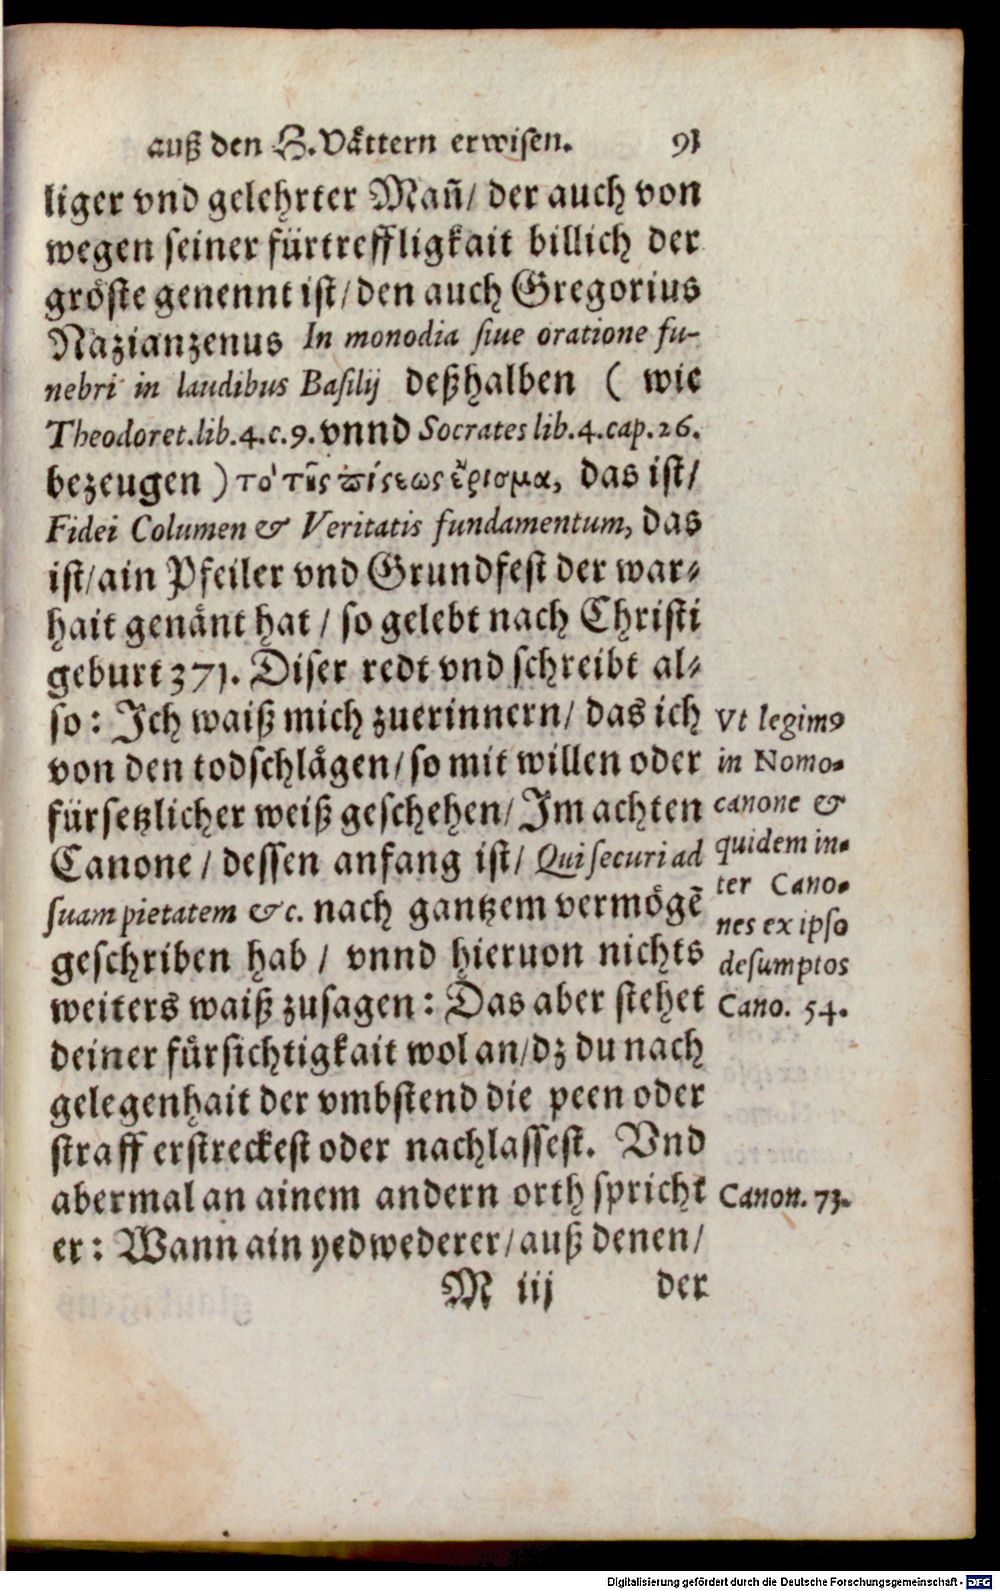 auß den H. Vättern erwisen. 91
liger vnd gelehrter Mañ/ der auch von
wegen seiner fürtreffligkait billich der
gröste genennt ist/ den auch Gregorius
Nazianzenus In monodia siue oratione fu-
nebri in laudibus Basilij deßhalben ( wie
Theodoret. lib. 4. c. 9. vnnd Socrates lib. 4. cap. 26.
bezeugen ) τὸ τῆς πίστεως ἔρισμα, das ist/
Fidei Columen & Veritatis fundamentum, das
ist/ ain Pfeiler vnd Grundfest der war-
hait genänt hat / so gelebt nach Christi
geburt 371. Diser redt vnd schreibt al-
so: Ich waiß mich zuerinnern/ das ich
von den todschlägen/ so mit willen oder
fürsetzlicher weiß geschehen/ Im achten
Canone / dessen anfang ist/ Qui securi ad
suam pietatem &c. nach gantzem vermögẽ
geschriben hab / vnnd hieruon nichts
weiters waiß zusagen: Das aber stehet
deiner fürsichtigkait wol an/ dz du nach
gelegenhait der vmbstend die peen oder
straff erstreckest oder nachlassest. Vnd
abermal an ainem andern orth spricht
er: Wann ain yedwederer/ auß denen/
M iij der
Vt legim9
in Nomo-
canone &
quidem in-
ter Cano-
nes ex ipso
desumptos
Cano. 54.
Canon. 73.
Digitalisierung gefördert durch die Deutsche Forschungsgemeinschaft - DFG